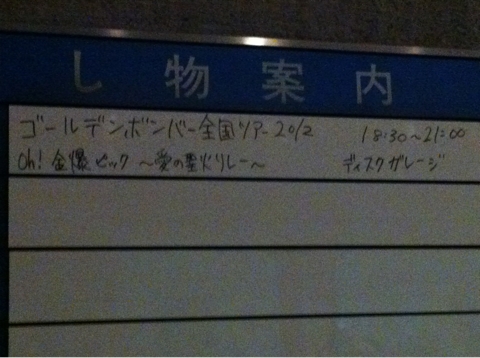 し物案内
ゴールデンボンバー全国ツアー2012 18:30~21:00
Oh!金爆ピック ～愛の聖火リレー～ ディスクガレージ